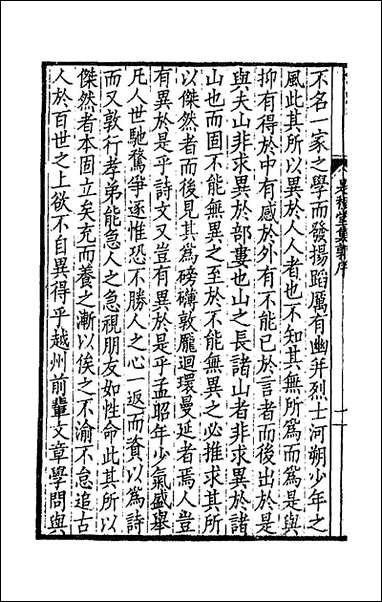 是程堂集郭序
一
不名一家之學而發揚蹈厲有幽并烈士河朔少年之
風此其所以異於人人者也不知其無所為而為是與
抑有得於中有感於外有不能已於言者而後出於是
與夫山非求異於部婁也山之長諸山者非求異於諸
山也而固不能無異之至於不能無異之必推求其所
以傑然者而後見其為磅礴敦龐迴環曼延者焉人豈
有異於是乎詩文又豈有異於是乎孟昭年少氣盛舉
凡人世馳騖爭逐惟恐不勝人之心一返而資以為詩
而又敦行孝弟能急人之急視朋友如性命此其所以
傑然者本固立矣充而養之漸以俟之不渝不怠追古
人於百世之上欲不自異得乎越州前輩文章學問與